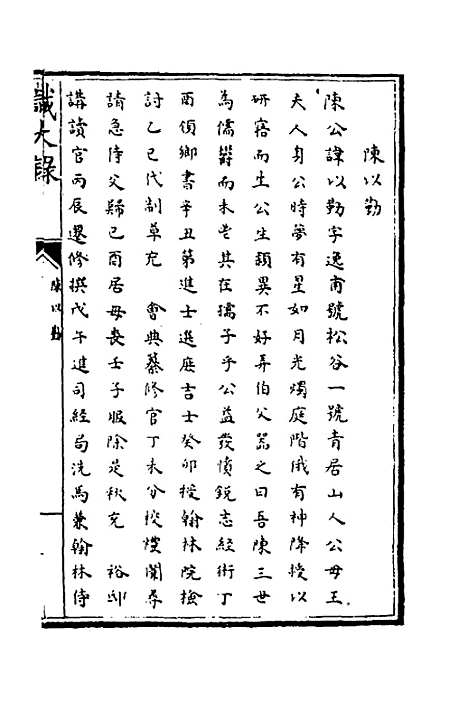 陳以勤
陳公諱以勤字逸甫號松谷一號青居山人公母王
夫人身公時夢有星如月光燭庭階俄有神降授以
研寤而生公生穎異不好弄伯父器之曰吾陳三世
為儒爵而未艾其在孺子乎公益發憤銳志經術丁
酉領鄉書辛丑第進士選庶吉士癸卯授翰林院檢
討乙巳代制草充 會典纂修官丁未分校禮闈尋
請急侍父歸己酉居母喪壬子服除是秋充 裕邸
講讀官丙辰遷修撰戊午進司經局洗馬兼翰林侍
識大錄
陳以勤